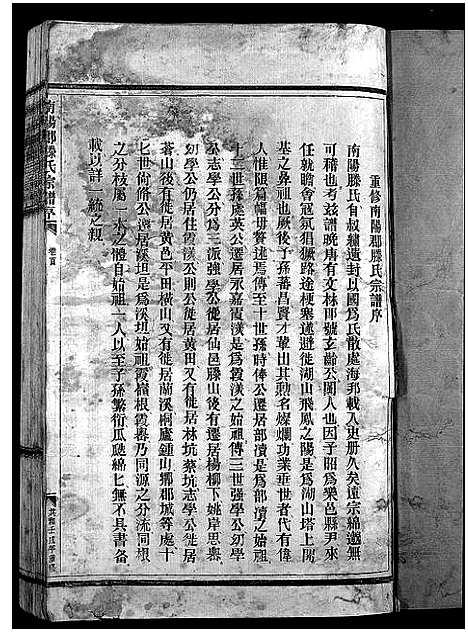 重修南陽郡滕氏宗譜序
南陽滕氏自叔繡遺封以國為氏散處海邦載入史册久矣遠宗綿邈無
可稽也考茲譜晚唐有文林郎號玄齡公閩人也因子昭為樂邑縣尹來
任就瞻會寇氛猖獗路途梗塞遂避徙湖山飛鳳之陽是為湖山塔上開
基之鼻祖也厥後子孫蕃昌賢才輩出其勲名燦爛功業垂世者代有偉
人惟限篇幅毋贅述焉傳至十世孫時俸公遷居部瀆是為部瀆之始祖
十三世孫處英公遷居永嘉霞渼是為霞渼之始祖傳三世强學公幼學
公志學公分為三派強學公後居仙邑滕山後有遷居楊柳下姚岸思嶴
幼學公仍居住霞渼公則公徙居黄田又有徙居林坑蔡坑志學公徙居
蒼山後有徙居黄邑平田橫山又有徙居蘭溪桐廬鍾山鄉郡城等處十
七世尚脩公遷居溪坦是為溪坦始祖霞嶺根霞嶴乃同源之分流同根
之分枝屬一木之體自始祖一人以至子孫繁衍瓜瓞綿綿無不具書備
載以詳一統之親
南陽郡滕氏宗譜序
卷首